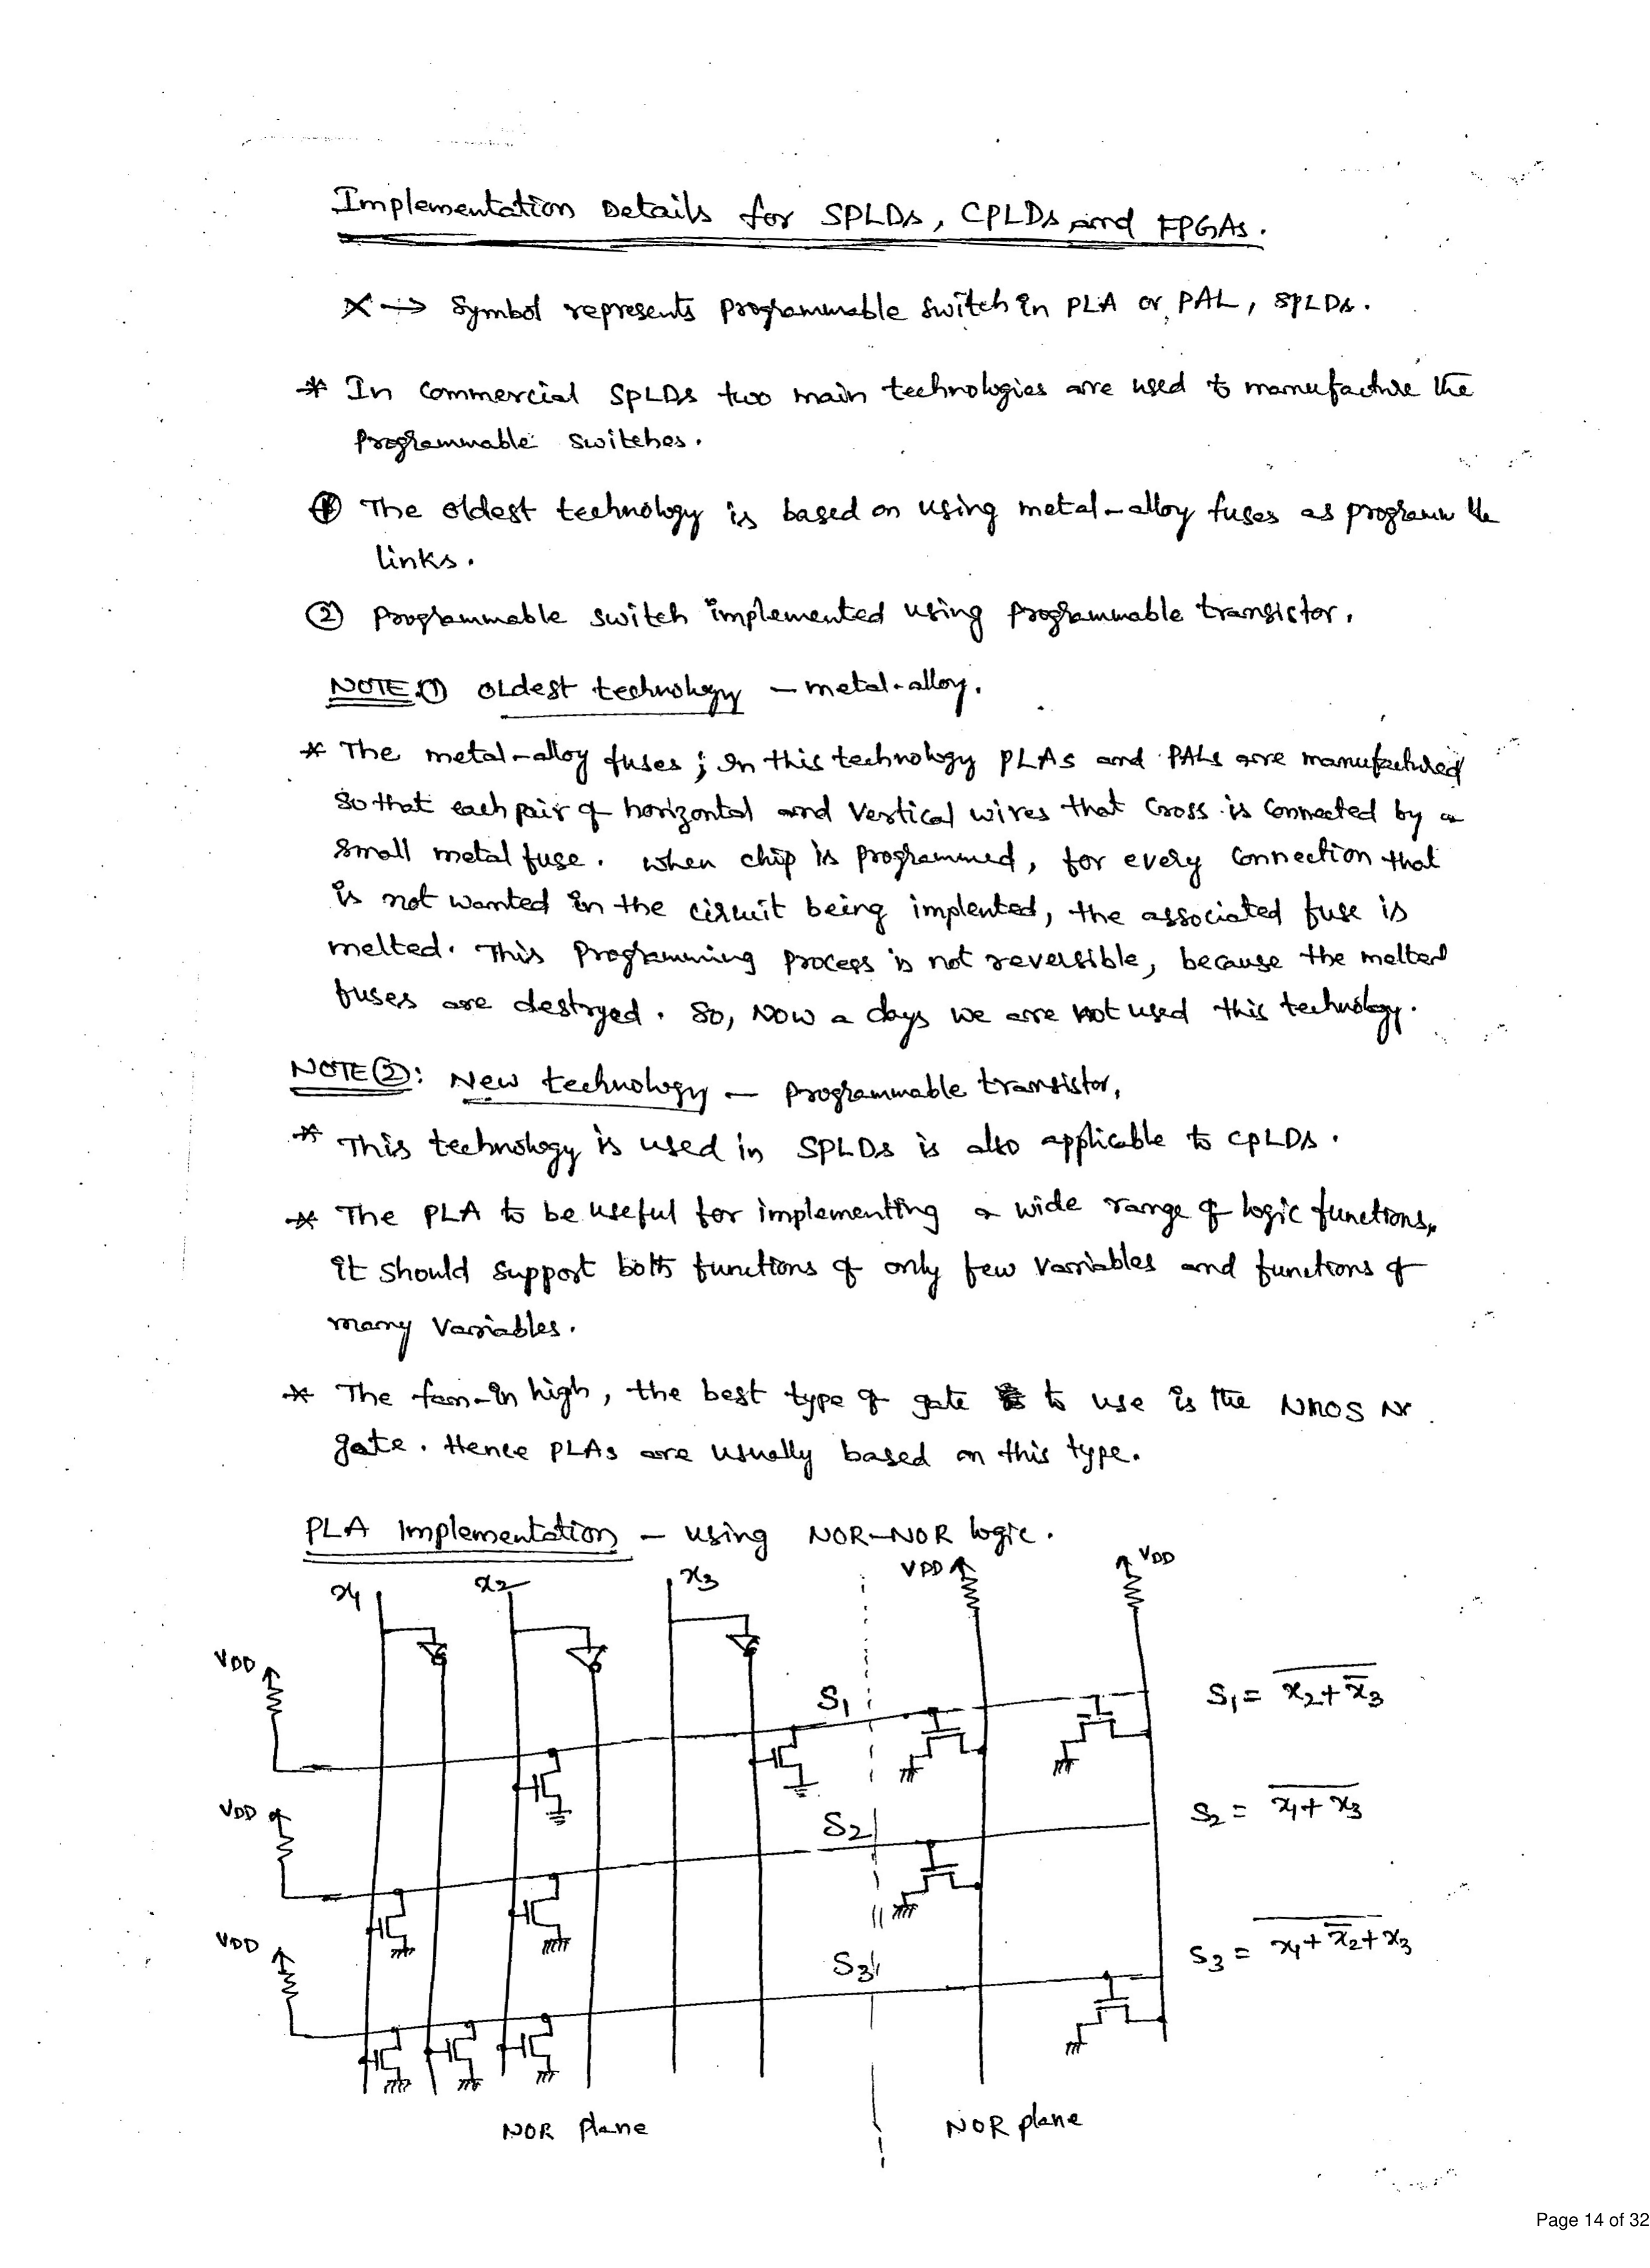 Implementation Details for SPLDs, CPLDs and FPGAs.
X → Symbol represents programmable switch in PLA or PAL, SPLDs.
* In commercial SPLDs two main technologies are used to manufacture the
programmable switches.
① The oldest technology is based on using metal-alloy fuses as programm ble
links.
② programmable switch implemented using programmable transistor.
NOTE ① OLdest technology - metal-alloy.
* The metal-alloy fuses ; In this technology PLAs and PALs are manufactured
so that each pair of horizontal and vertical wires that cross is connected by a
small metal fuse. when chip is programmed, for every connection that
is not wanted in the circuit being implented, the associated fuse is
melted. This programming process is not reversible, because the melted
fuses are destryed. So, Now a days we are not used this technology.
NOTE ②: New technology - programmable transistor,
* This technology is used in SPLDs is also applicable to CPLDs.
* The PLA to be useful for implementing a wide range of logic functions,
it should support both functions of only few variables and functions of
many variables.
* The fan-in high, the best type of gate to use is the NMOS
gate. Hence PLAs are usually based on this type.
PLA Implementation - using NOR-NOR logic.
x1 x2 x3 VDD VDD
VDD
S1 S1 = \overline{x2+\overline{x}3}
VDD S2 S2 = \overline{x1+x3}
VDD S3 S3 = \overline{x1+\overline{x}2+x3}
NOR plane NOR plane
Page 14 of 32